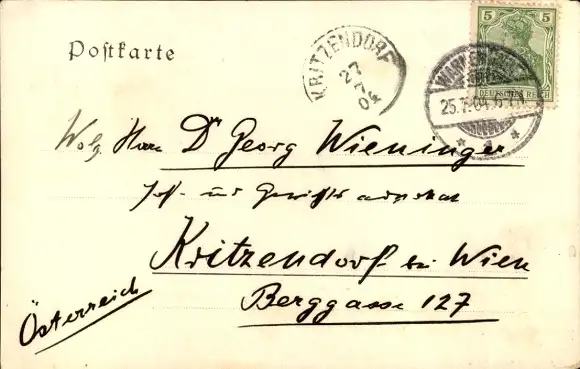 Postkarte
KRITZENDORF
27
7
04
5 5
DEUTSCHES REICH
25.7.04
Herrn Dr Georg Wieninger
Hof- und Gerichts advokat
Kritzendorf bei Wien
Berggasse 127
Österreich